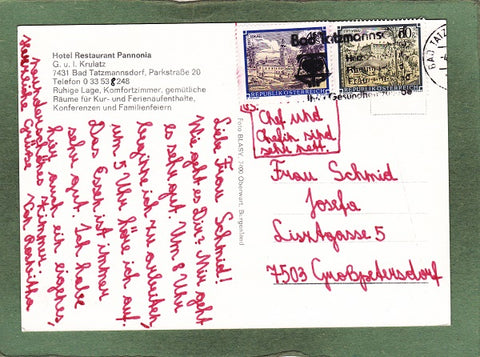 Hotel Restaurant Pannonia
G. u. I. Krulatz
7431 Bad Tatzmannsdorf, Parkstraße 20
Telefon 0 33 53 8 248
Ruhige Lage, Komfortzimmer, gemütliche
Räume für Kur- und Ferienaufenthalte,
Konferenzen und Familienfeiern
Bad Tatzmannsd
REPUBLIK ÖSTERREICH
REPUBLIK ÖSTERREICH
BAD TATZ
Chef und
Chefin sind
sehr nett.
Liebe Frau Schmid!
Wie geht es Dir? Mir geht
es sehr gut. Um 8 Uhr
beginne ich zu arbeiten,
um 5 Uhr höre ich auf.
Das Essen ist immer
sehr gut. Ich habe
hier auch ein eigenes,
wunderschönes Zimmer.
Herzliche Grüße
von Roswitha
Foto BLASY, 7400 Oberwart, Burgenland
Frau Schmid
Josefa
Lisztgasse 5
7503 Großpetersdorf